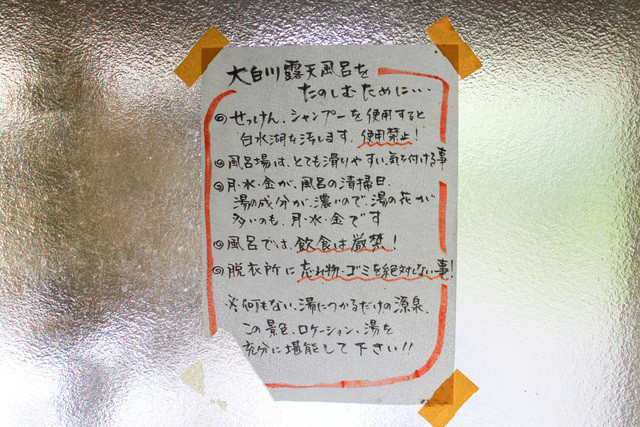 大白川露天風呂を
たのしむために…
◎せっけん、シャンプーを使用すると
白水湖を汚します。使用禁止!
◎風呂場は、とても滑りやすい、気を付ける事
◎月・水・金が、風呂の清掃日、
湯の成分が、濃いので、湯の花が
多いのも、月・水・金です
◎風呂では、飲食は厳禁!
◎脱衣所に忘れ物・ゴミを絶対しない事!
※何もない、湯につかるだけの源泉、
この景色、ロケーション、湯を
充分に堪能して下さい!!